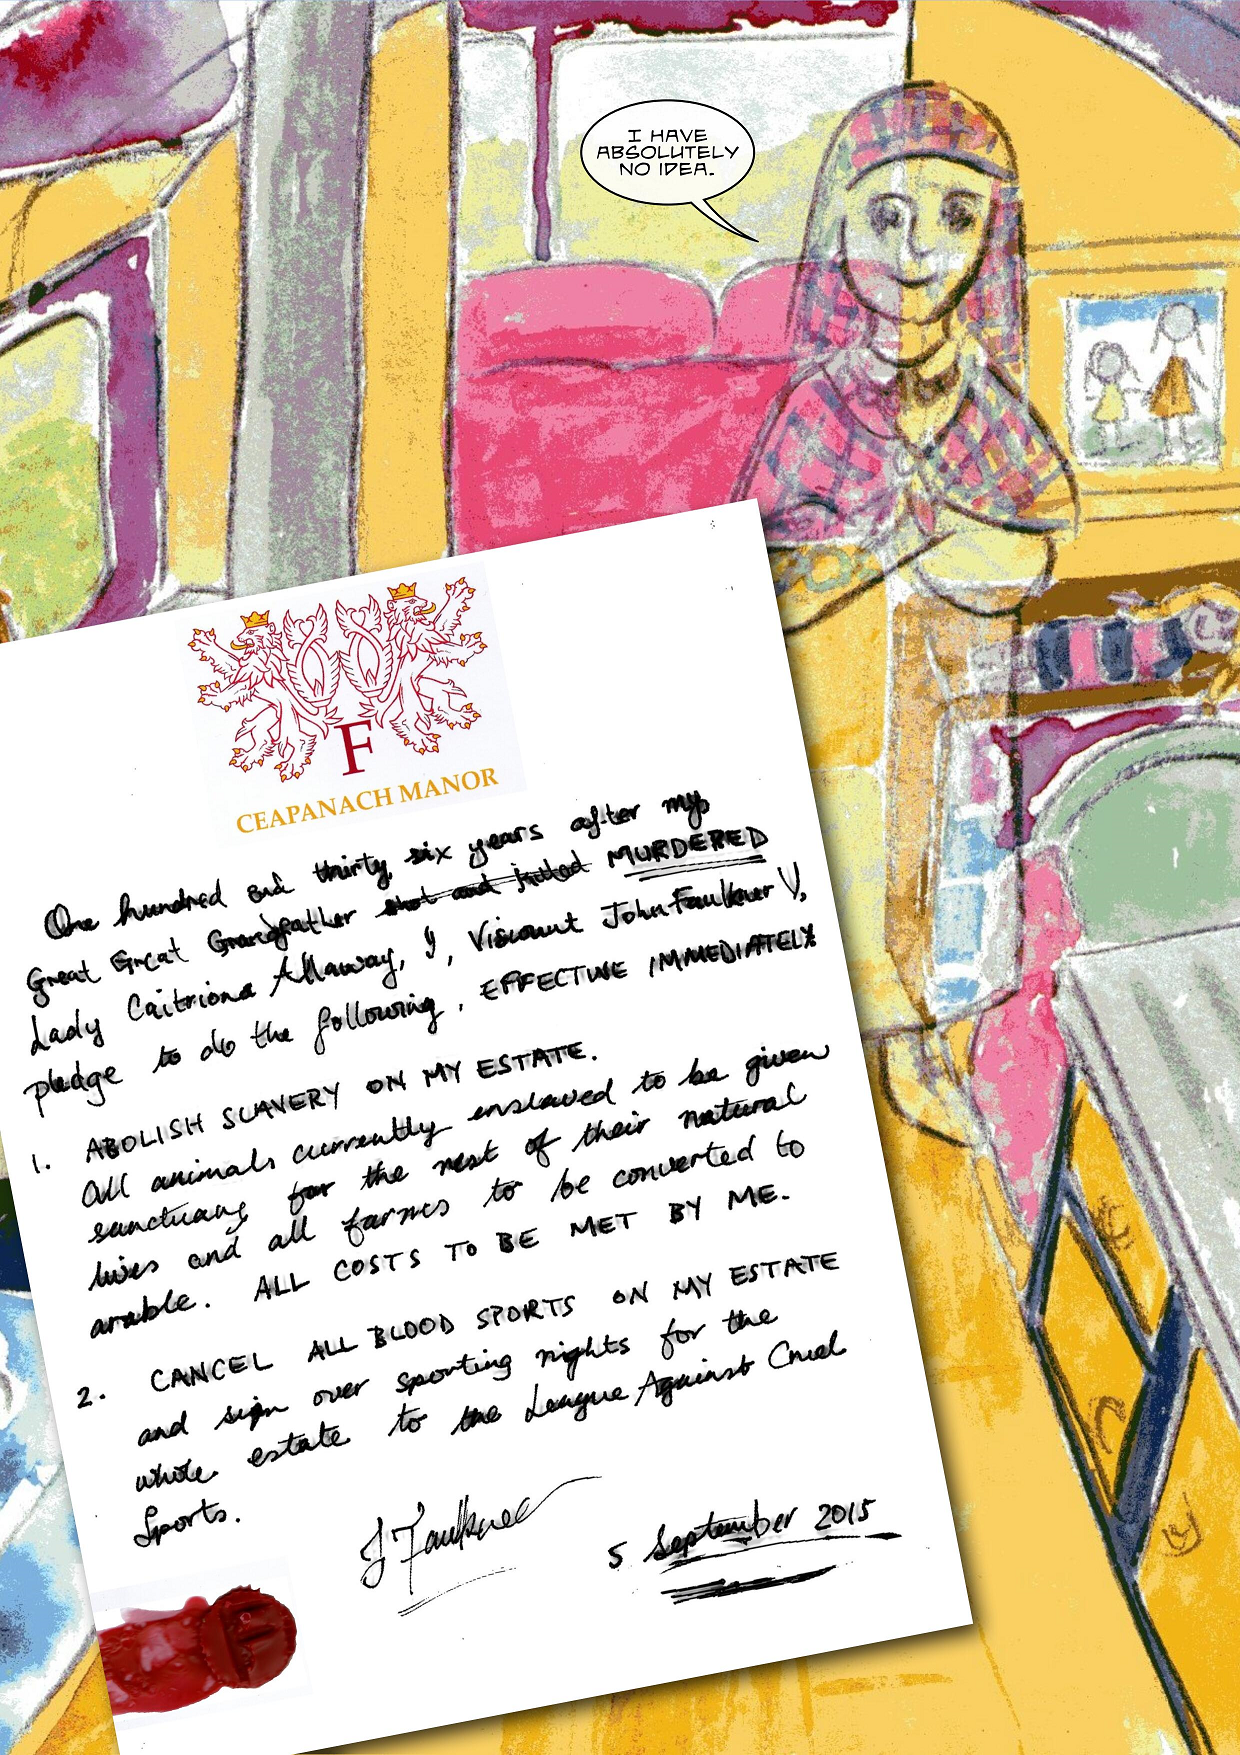 I HAVE
ABSOLUTELY
NO IDEA.
F
CEAPANACH MANOR
One hundred and thirty six years after my
Great Great Grandfather shot and killed MURDERED
Lady Caitriona Allaway, I, Viscount John Faulkner V,
pledge to do the following, EFFECTIVE IMMEDIATELY
1. ABOLISH SLAVERY ON MY ESTATE.
All animals currently enslaved to be given
sanctuary for the rest of their natural
lives and all farms to be converted to
arable. ALL COSTS TO BE MET BY ME.
2. CANCEL ALL BLOOD SPORTS ON MY ESTATE
and sign over sporting rights for the
whole estate to the League Against Cruel
Sports.
J Faulkner
5 September 2015